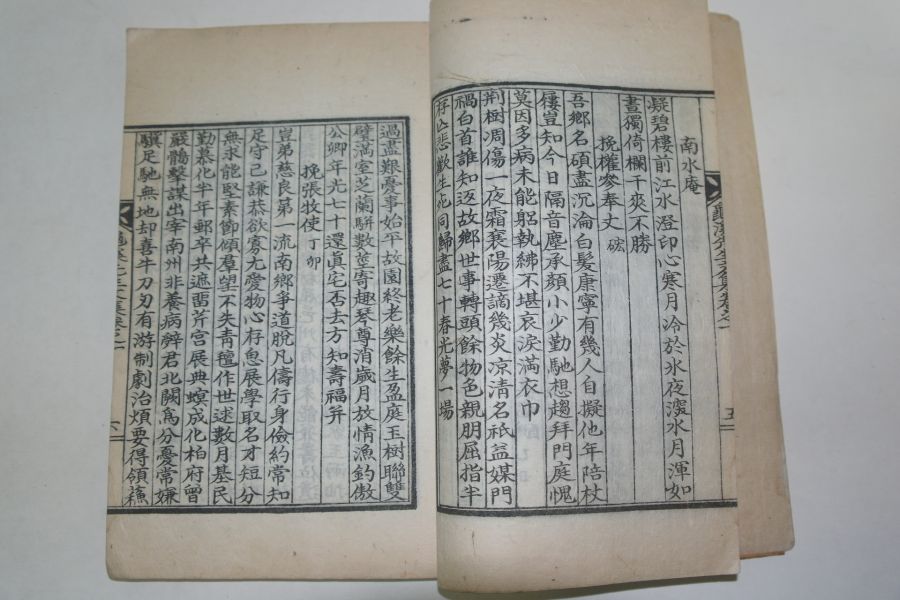 南水庵
凝碧樓前江水澄印心寒月冷於氷夜深水月渾如
晝獨倚欄干爽不勝
挽權參奉丈 硡
吾鄕名碩盡沉淪白髮康寧有幾人自擬他年陪杖
屨豈知今日隔音塵承顔小少勤馳想趨拜門庭愧
莫因多病未能躬執紼不堪哀淚滿衣巾
荆樹凋傷一夜霜襄陽遷謫幾炎凉淸名祇益媒門
禍白首誰知返故鄕世事轉頭餘物色親朋屈指半
存亡悲歡生死同歸盡七十春光夢一場
五
過盡艱憂事始平故園終老樂餘生盈庭玉樹聯雙
璧滿室芝蘭騈數莖寄趣琴尊消歲月放情漁釣傲
公卿年光七十還眞宅否去方知壽福幷
挽張牧使 丁卯
豈弟慈良第一流南鄕爭道脫凡儔行身儉約常知
足守己謙恭欲寡尤愛物心存魚展學取名才短分
無求能堅素節傾羣望不失靑氊作世球數月基民
勤慕化半年郵卒共遮留芹宮展典螟成化柏府曾
嚴鶻擊謀出宰南州非養病辭君北闕爲分憂常嫌
驥足馳無地却喜牛刀刃有游制劇治煩要得領
六